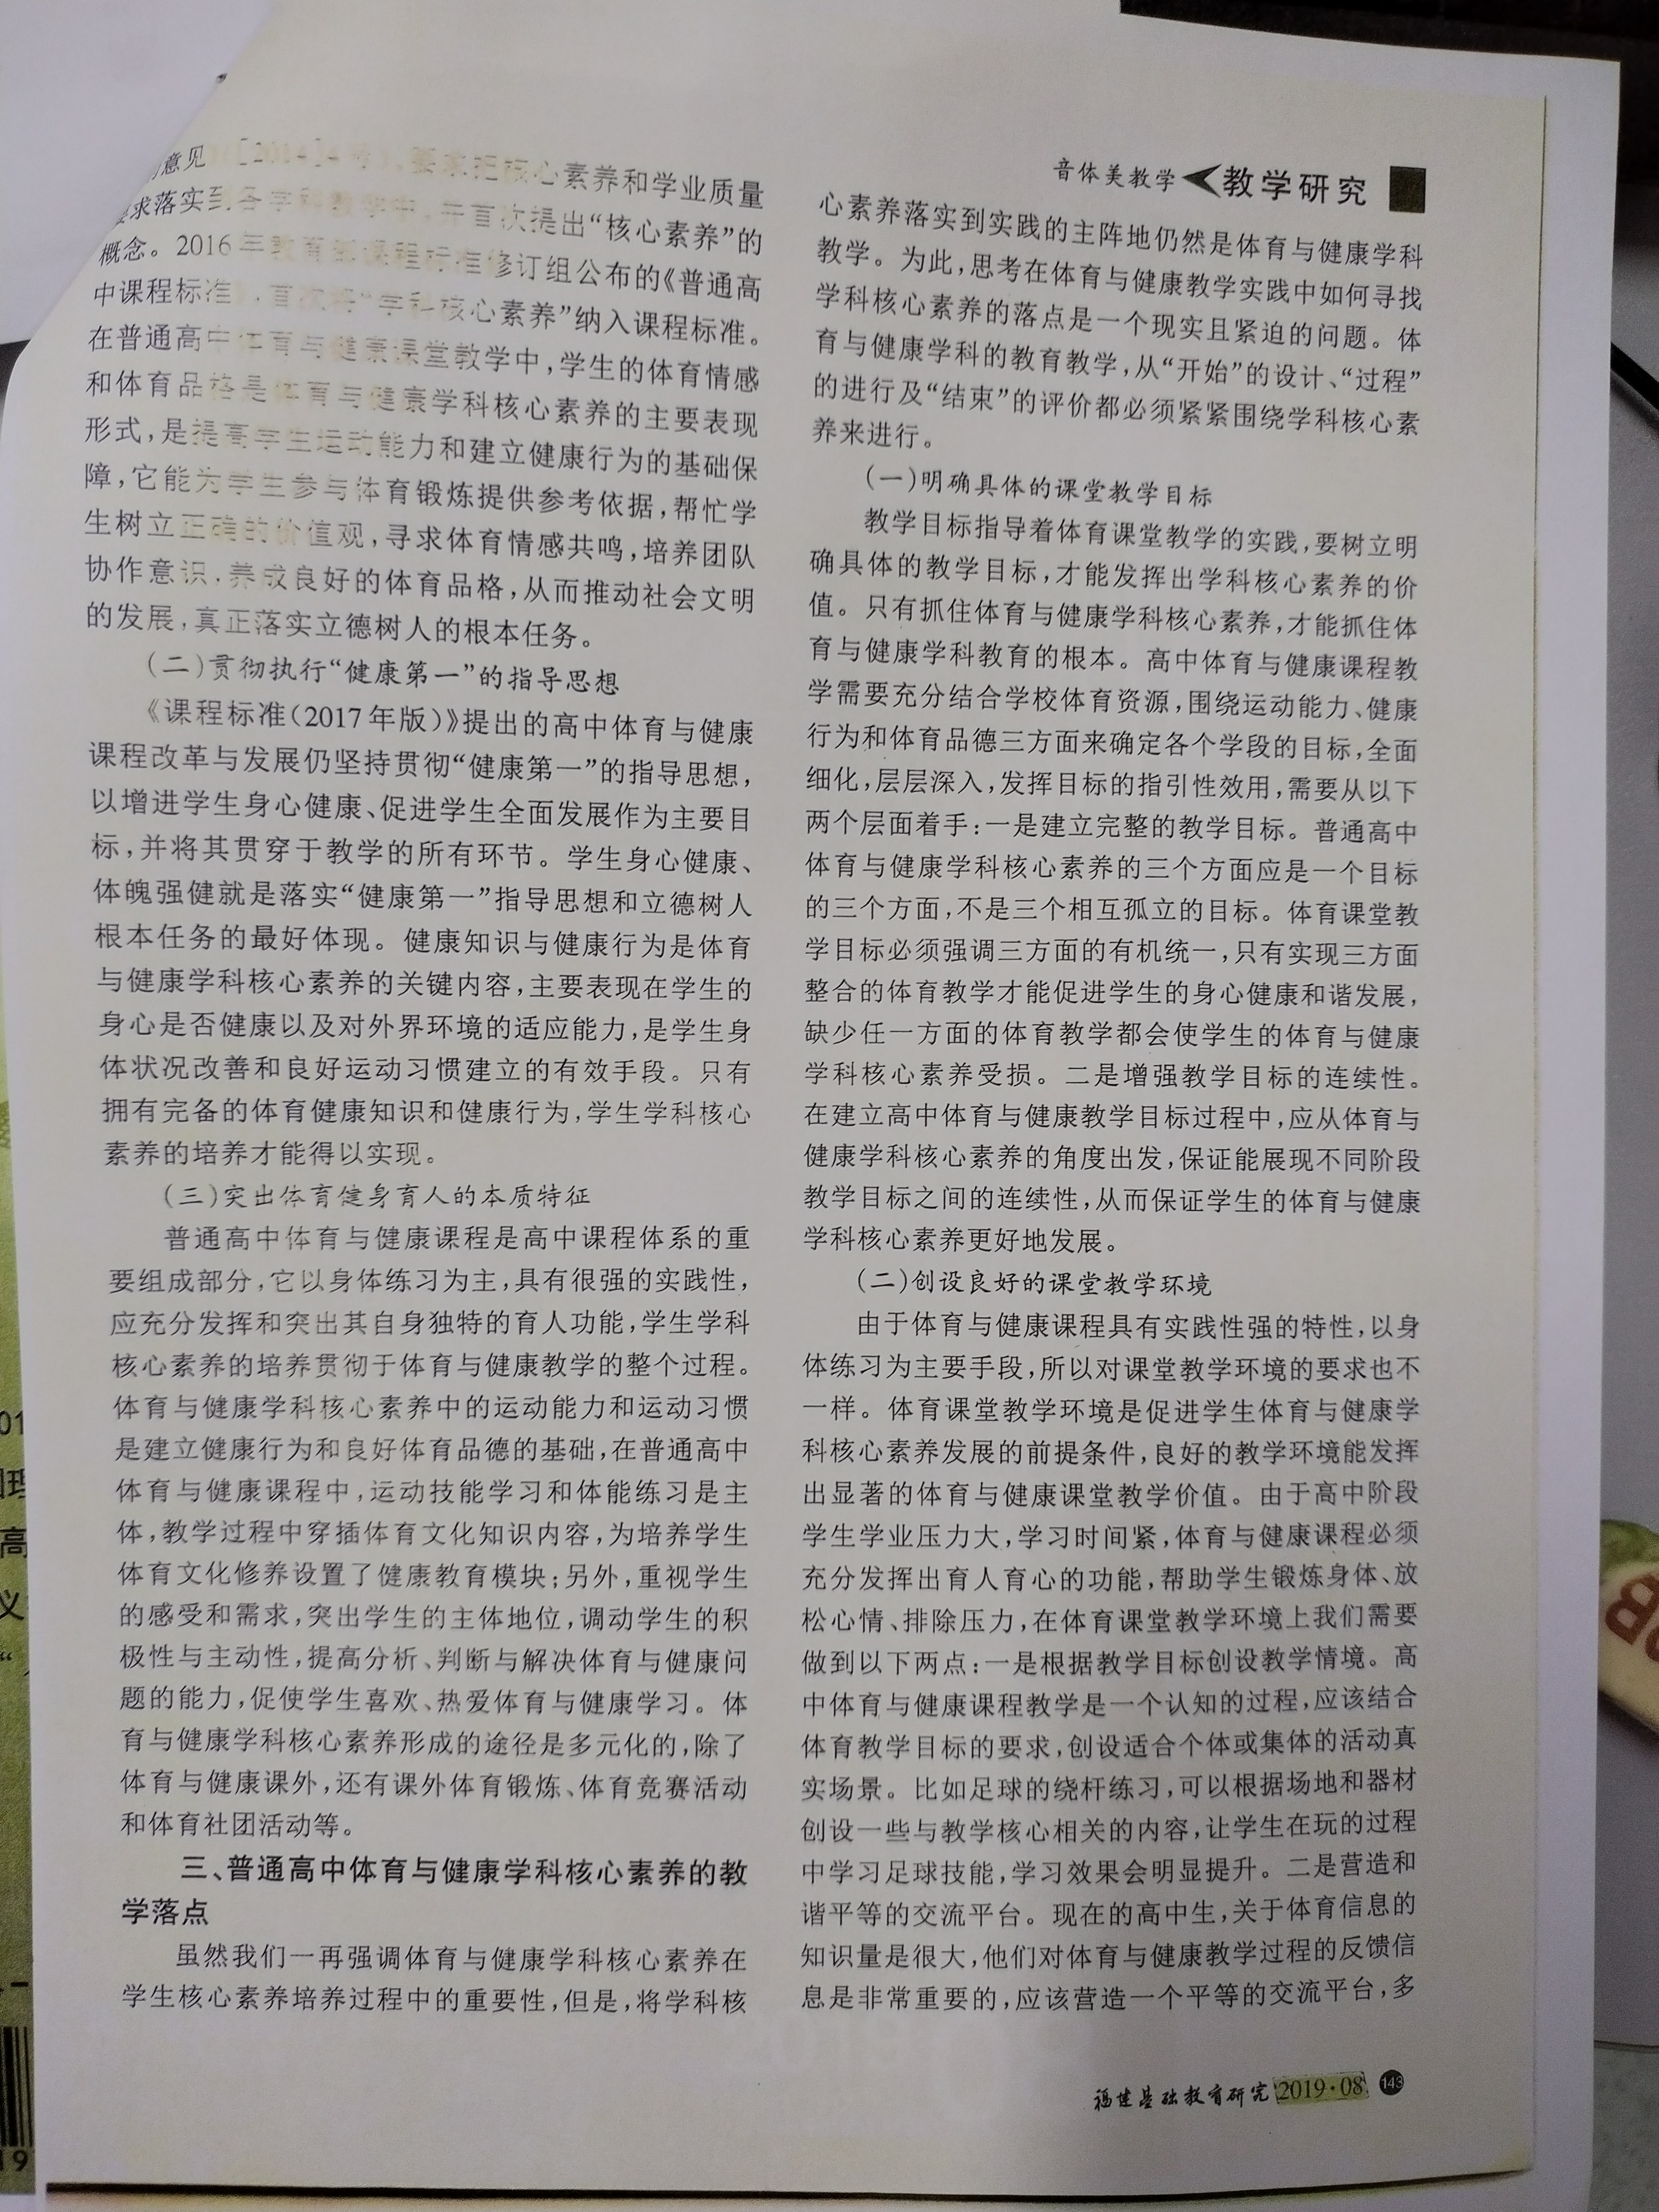 音体美教学 教学研究
意见》〔2014〕4号），要求把核心素养和学业质量
要求落实到各学科教学中，并首次提出“核心素养”的
概念。2016年教育部课程标准修订组公布的《普通高
中课程标准》，首次将“学科核心素养”纳入课程标准。
在普通高中体育与健康课堂教学中，学生的体育情感
和体育品格是体育与健康学科核心素养的主要表现
形式，是提高学生运动能力和建立健康行为的基础保
障，它能为学生参与体育锻炼提供参考依据，帮忙学
生树立正确的价值观，寻求体育情感共鸣，培养团队
协作意识，养成良好的体育品格，从而推动社会文明
的发展，真正落实立德树人的根本任务。
（二）贯彻执行“健康第一”的指导思想
《课程标准（2017年版）》提出的高中体育与健康
课程改革与发展仍坚持贯彻“健康第一”的指导思想，
以增进学生身心健康、促进学生全面发展作为主要目
标，并将其贯穿于教学的所有环节。学生身心健康、
体魄强健就是落实“健康第一”指导思想和立德树人
根本任务的最好体现。健康知识与健康行为是体育
与健康学科核心素养的关键内容，主要表现在学生的
身心是否健康以及对外界环境的适应能力，是学生身
体状况改善和良好运动习惯建立的有效手段。只有
拥有完备的体育健康知识和健康行为，学生学科核心
素养的培养才能得以实现。
（三）突出体育健身育人的本质特征
普通高中体育与健康课程是高中课程体系的重
要组成部分，它以身体练习为主，具有很强的实践性，
应充分发挥和突出其自身独特的育人功能，学生学科
核心素养的培养贯彻于体育与健康教学的整个过程。
体育与健康学科核心素养中的运动能力和运动习惯
是建立健康行为和良好体育品德的基础，在普通高中
体育与健康课程中，运动技能学习和体能练习是主
体，教学过程中穿插体育文化知识内容，为培养学生
体育文化修养设置了健康教育模块；另外，重视学生
的感受和需求，突出学生的主体地位，调动学生的积
极性与主动性，提高分析、判断与解决体育与健康问
题的能力，促使学生喜欢、热爱体育与健康学习。体
育与健康学科核心素养形成的途径是多元化的，除了
体育与健康课外，还有课外体育锻炼、体育竞赛活动
和体育社团活动等。
三、普通高中体育与健康学科核心素养的教
学落点
虽然我们一再强调体育与健康学科核心素养在
学生核心素养培养过程中的重要性，但是，将学科核
心素养落实到实践的主阵地仍然是体育与健康学科
教学。为此，思考在体育与健康教学实践中如何寻找
学科核心素养的落点是一个现实且紧迫的问题。体
育与健康学科的教育教学，从“开始”的设计、“过程”
的进行及“结束”的评价都必须紧紧围绕学科核心素
养来进行。
（一）明确具体的课堂教学目标
教学目标指导着体育课堂教学的实践，要树立明
确具体的教学目标，才能发挥出学科核心素养的价
值。只有抓住体育与健康学科核心素养，才能抓住体
育与健康学科教育的根本。高中体育与健康课程教
学需要充分结合学校体育资源，围绕运动能力、健康
行为和体育品德三方面来确定各个学段的目标，全面
细化，层层深入，发挥目标的指引性效用，需要从以下
两个层面着手：一是建立完整的教学目标。普通高中
体育与健康学科核心素养的三个方面应是一个目标
的三个方面，不是三个相互孤立的目标。体育课堂教
学目标必须强调三方面的有机统一，只有实现三方面
整合的体育教学才能促进学生的身心健康和谐发展，
缺少任一方面的体育教学都会使学生的体育与健康
学科核心素养受损。二是增强教学目标的连续性。
在建立高中体育与健康教学目标过程中，应从体育与
健康学科核心素养的角度出发，保证能展现不同阶段
教学目标之间的连续性，从而保证学生的体育与健康
学科核心素养更好地发展。
（二）创设良好的课堂教学环境
由于体育与健康课程具有实践性强的特性，以身
体练习为主要手段，所以对课堂教学环境的要求也不
一样。体育课堂教学环境是促进学生体育与健康学
科核心素养发展的前提条件，良好的教学环境能发挥
出显著的体育与健康课堂教学价值。由于高中阶段
学生学业压力大，学习时间紧，体育与健康课程必须
充分发挥出育人育心的功能，帮助学生锻炼身体、放
松心情、排除压力，在体育课堂教学环境上我们需要
做到以下两点：一是根据教学目标创设教学情境。高
中体育与健康课程教学是一个认知的过程，应该结合
体育教学目标的要求，创设适合个体或集体的活动真
实场景。比如足球的绕杆练习，可以根据场地和器材
创设一些与教学核心相关的内容，让学生在玩的过程
中学习足球技能，学习效果会明显提升。二是营造和
谐平等的交流平台。现在的高中生，关于体育信息的
知识量是很大，他们对体育与健康教学过程的反馈信
息是非常重要的，应该营造一个平等的交流平台，多
福建基础教育研究 2019·08 143